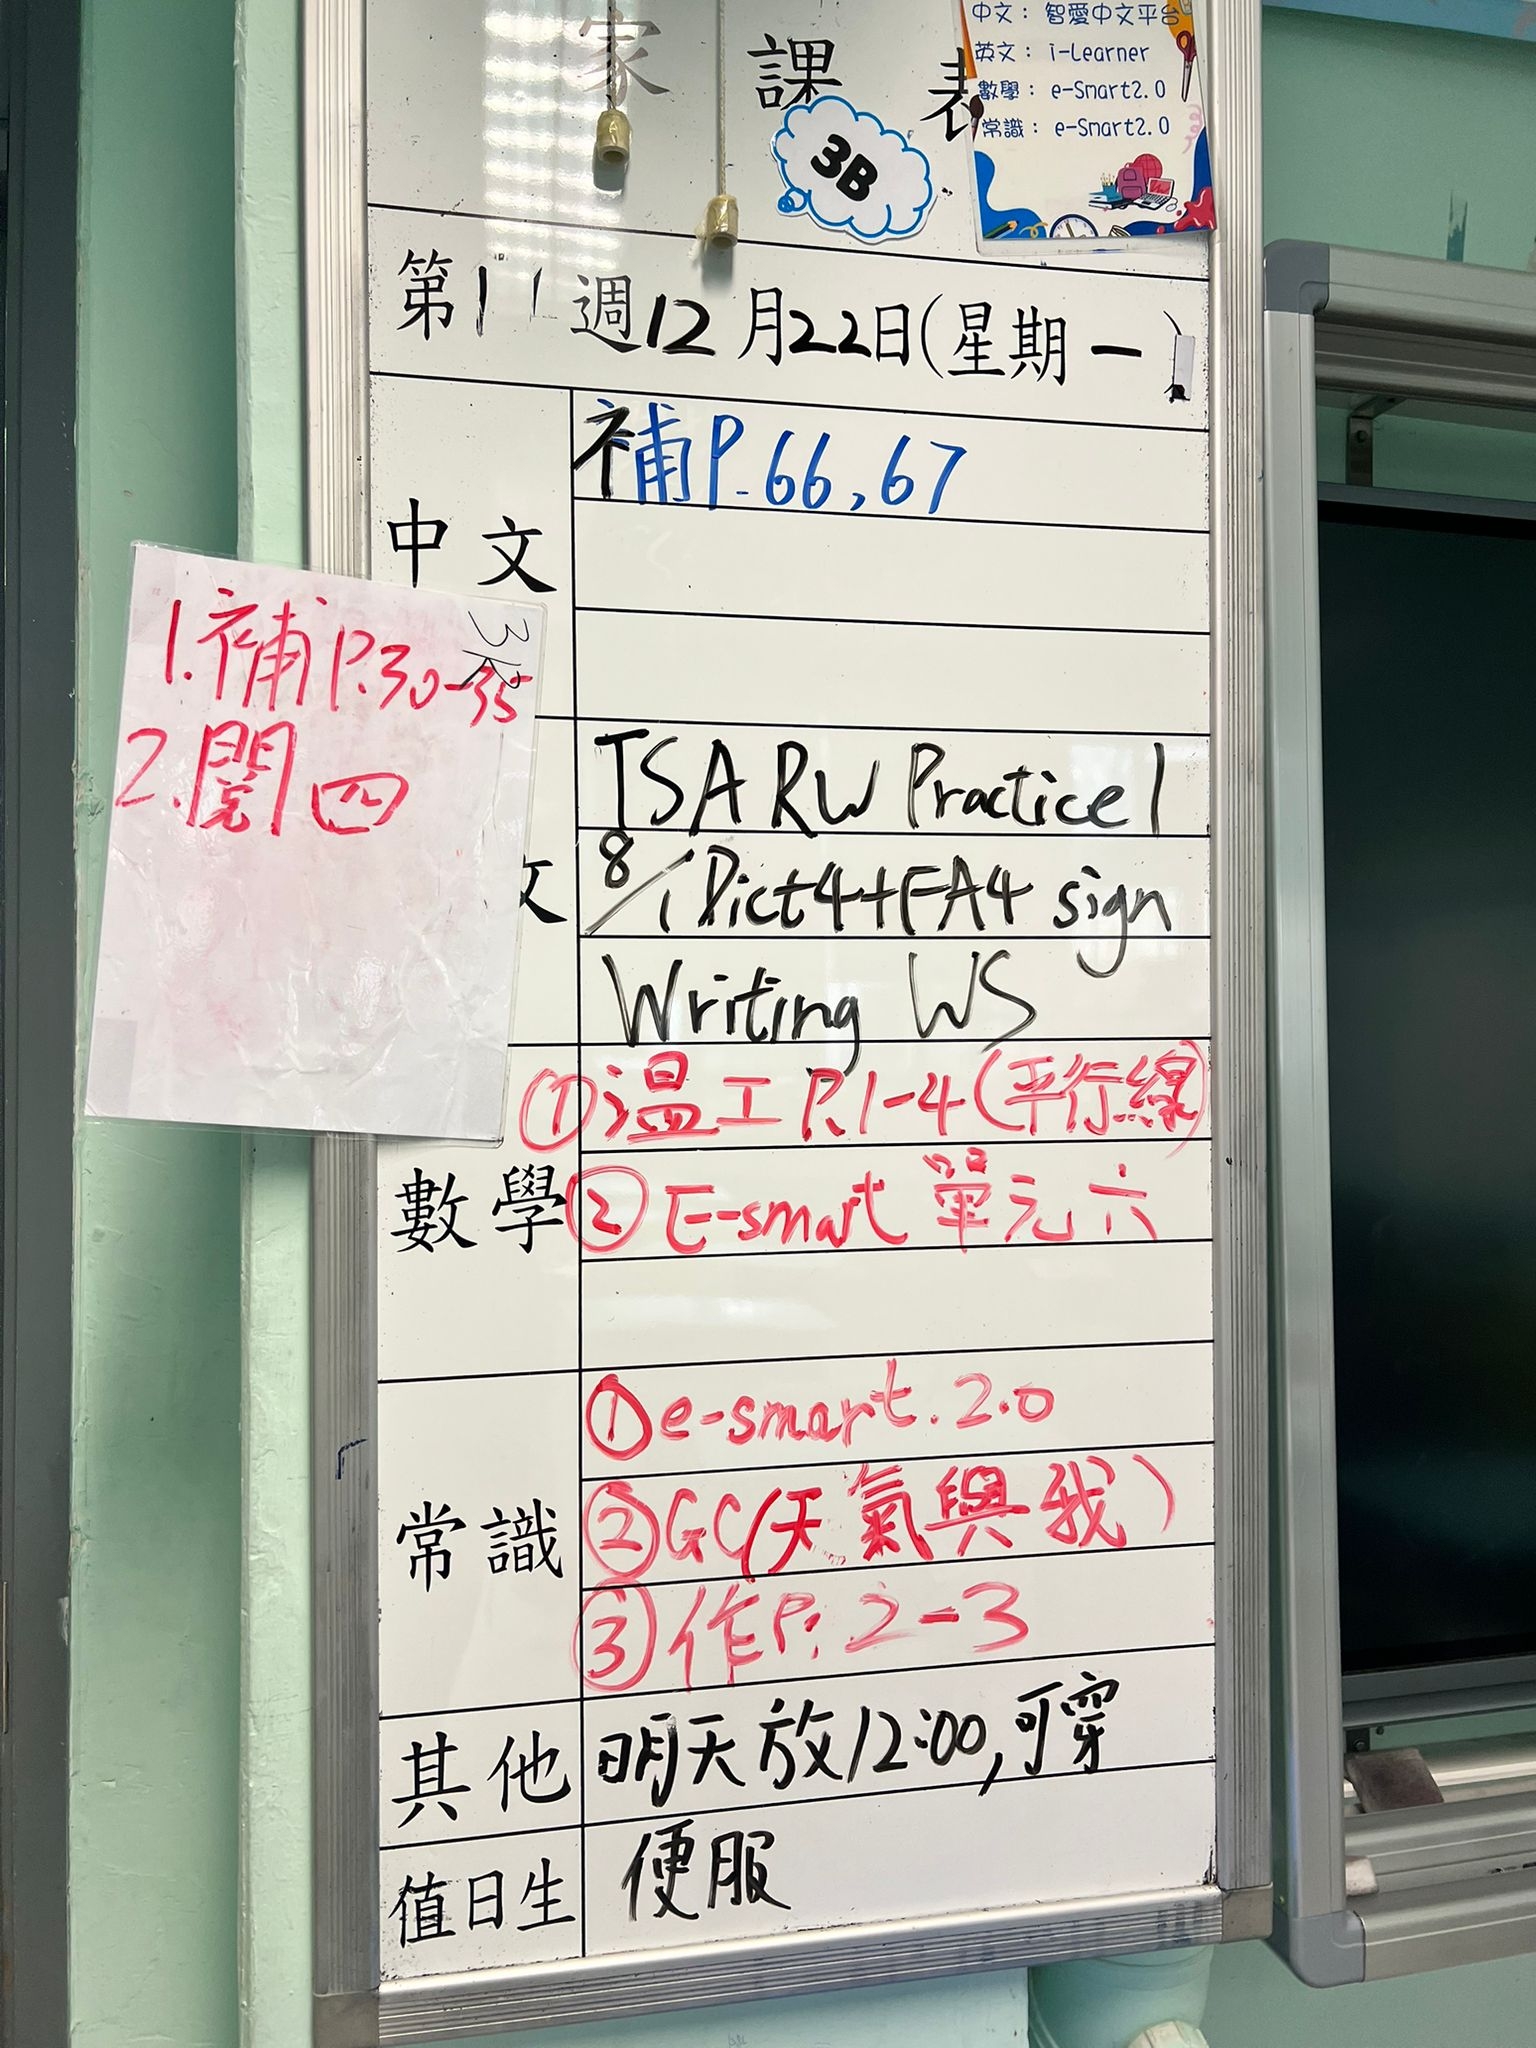 家 課 表
3B
中文： 智愛中文平台
英文： i-Learner
數學： e-Smart2.0
常識： e-Smart2.0
第11週12月22日(星期一)
中文
補P.66,67
1.補P.30-35
2.閱四
文
TSA RW Practice 1
8/1 Dict4+FA4 sign
Writing WS
數學
①溫工P.1-4(平行線)
②E-smart 單元六
常識
①e-smart.2.0
②GC(天氣與我)
③作P. 2-3
其他
明天放12:00,可穿
便服
值日生